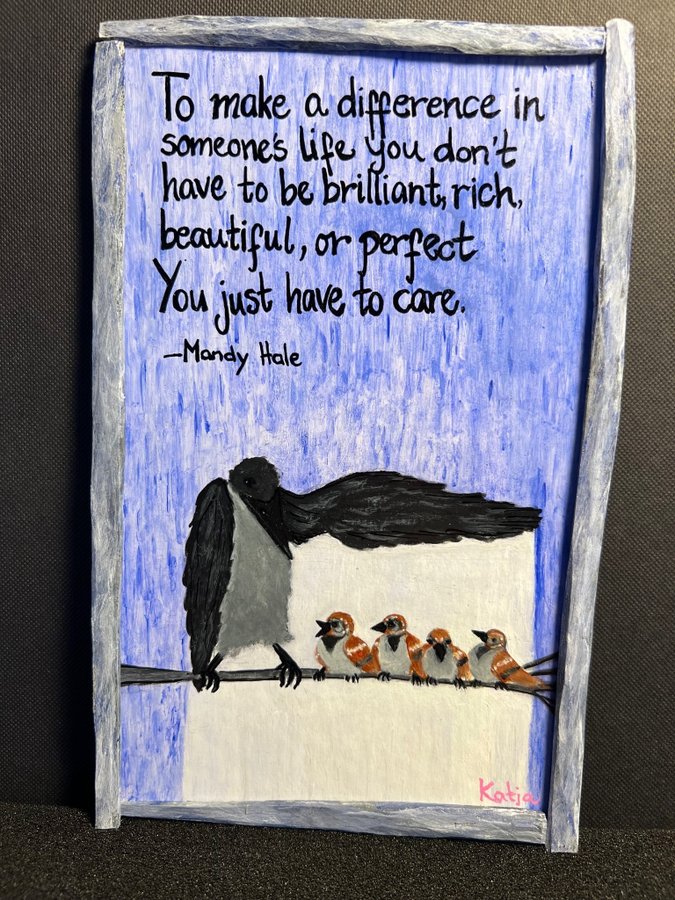 To make a difference in
someone's life you don't
have to be brilliant, rich,
beautiful, or perfect
You just have to care.
—Mandy Hale
Katja